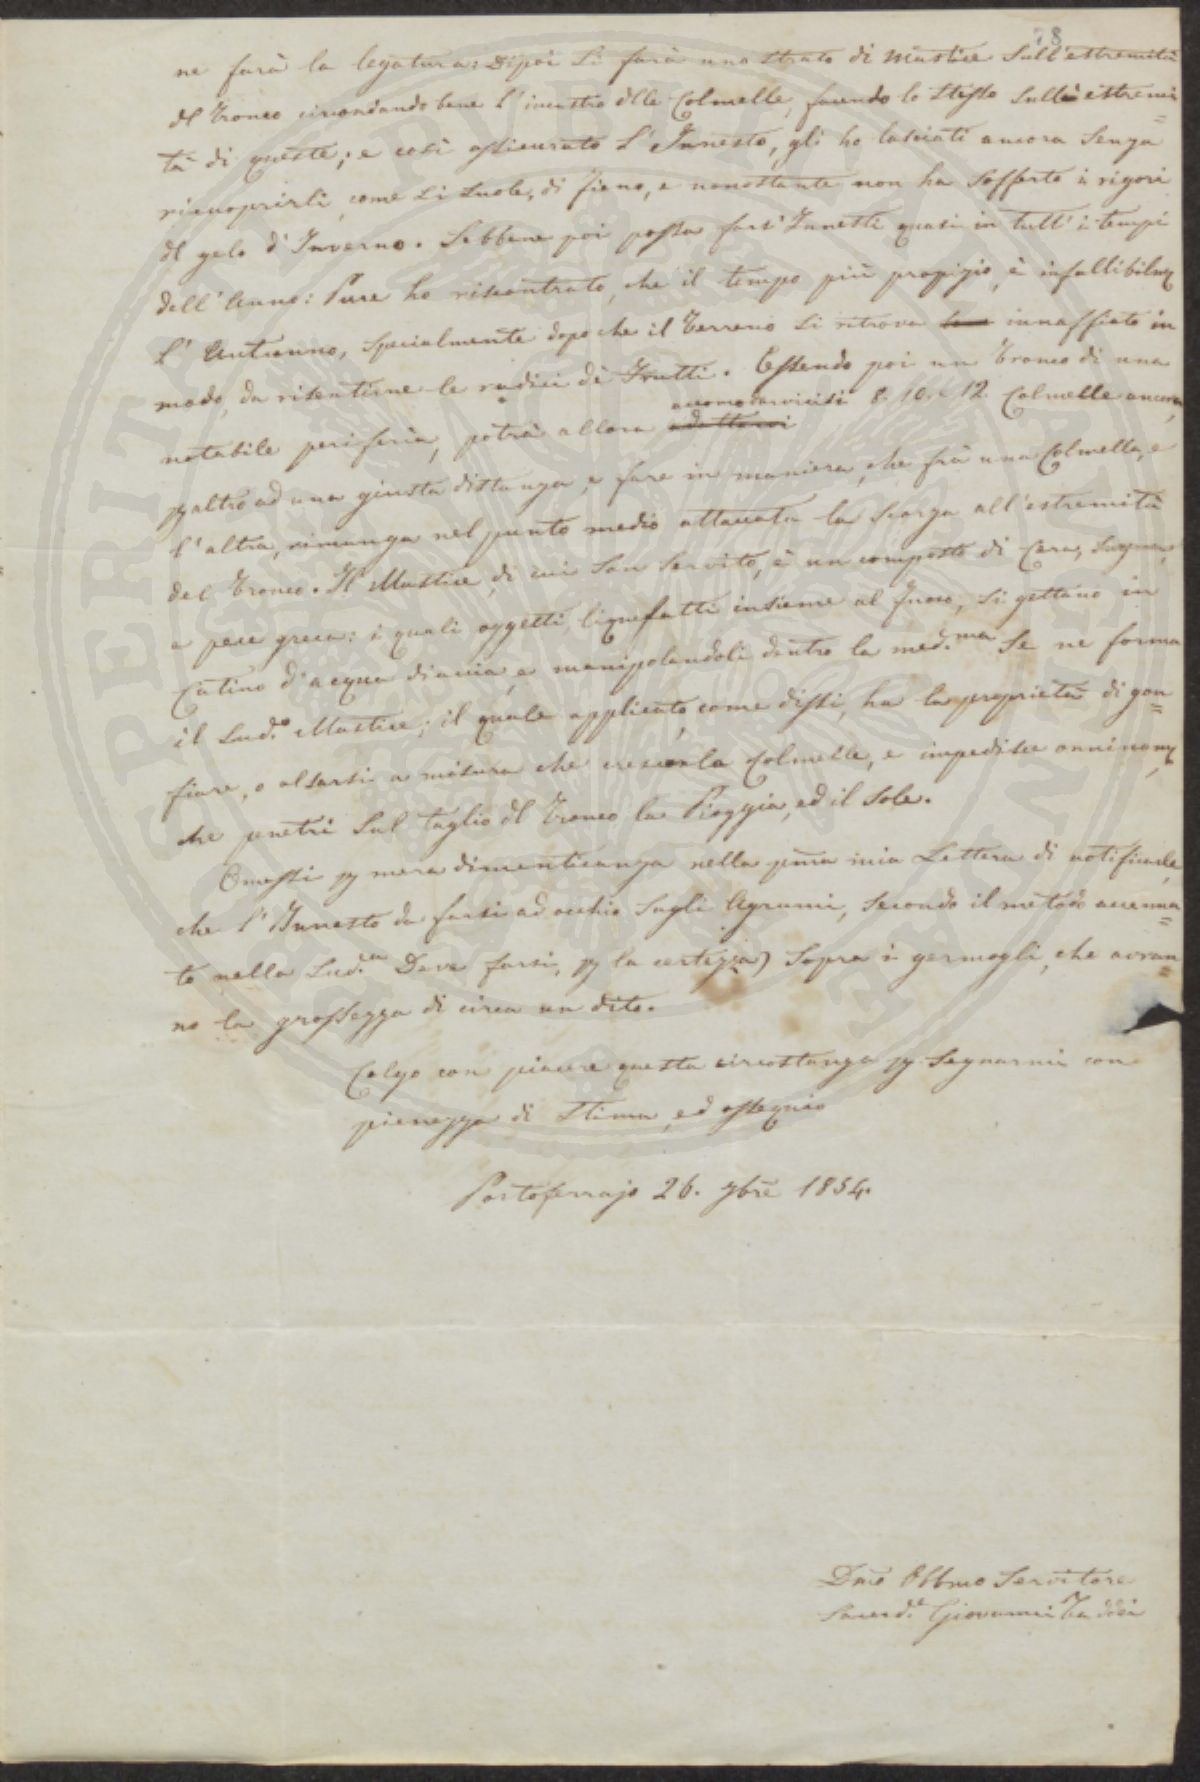 78
ne farà la legatura: Dipoi si farà uno strato di Mastice sull'estremità
dl Tronco circondando bene l'incastro dlle Colmelle, facendo lo stesso sulle estremi=
tà di queste; e così assicurato l'Innesto, gli ho lasciati ancora senza
ricuoprirli, come si suole, di fieno, e nonostante non ha sofferto i rigori
dl gelo d'Inverno. Sebbene poi possa farsi Innesti quasi in tutt'i tempi
dell'Anno: Pure ho riscontrato, che il tempo più propizio, è infallibilm
l'Autunno, specialmente dopo che il Terreno si ritrova innaffiato in
modo, da risentirne le radici dè Frutti. Essendo poi un Tronco di una
notabile periferia, potrà allora adattarvi accomodarvicisi 8. 10. e 12. Colmelle ancora,
p altro ad una giusta distanza, e fare in maniera, che frà una Colmella, e
l'altra, rimanga nel punto medio attaccata la scorza all'estremità
del Tronco. Il Mastice, di cui son servito, è un composto di Cera, Sugna,
e pece greca: i quali oggetti, liquefatti insieme al fuoco, si gettano in
Catino d'acqua diaccia, e manipolandoli dentro la med.ma se ne forma
il sud.o Mastice; il quale applicato, come dissi, ha la proprietà di gon=
fiare, o alzarsi a misura che cresconla Colmelle, e impedisce onninam
che penetri sul taglio dl Tronco la Pioggia, ed il Sole.
Omessi p mera dimenticanza nella pma mia Lettera di notificarle,
che l'Innesto da farsi ad occhio sugli Agrumi, secondo il metodo accenna=
to nella sud.a Deve farsi, p la certezza) sopra i germogli, che avran=
no la grossezza di circa un dito.
Colgo con piacere questa circostanza p segnarmi con
pienezza di stima, ed ossequio
Portoferrajo 26. 9bre 1854.
Dmo Obbmo Servitore
Sacerd.e Giovanni Taddei